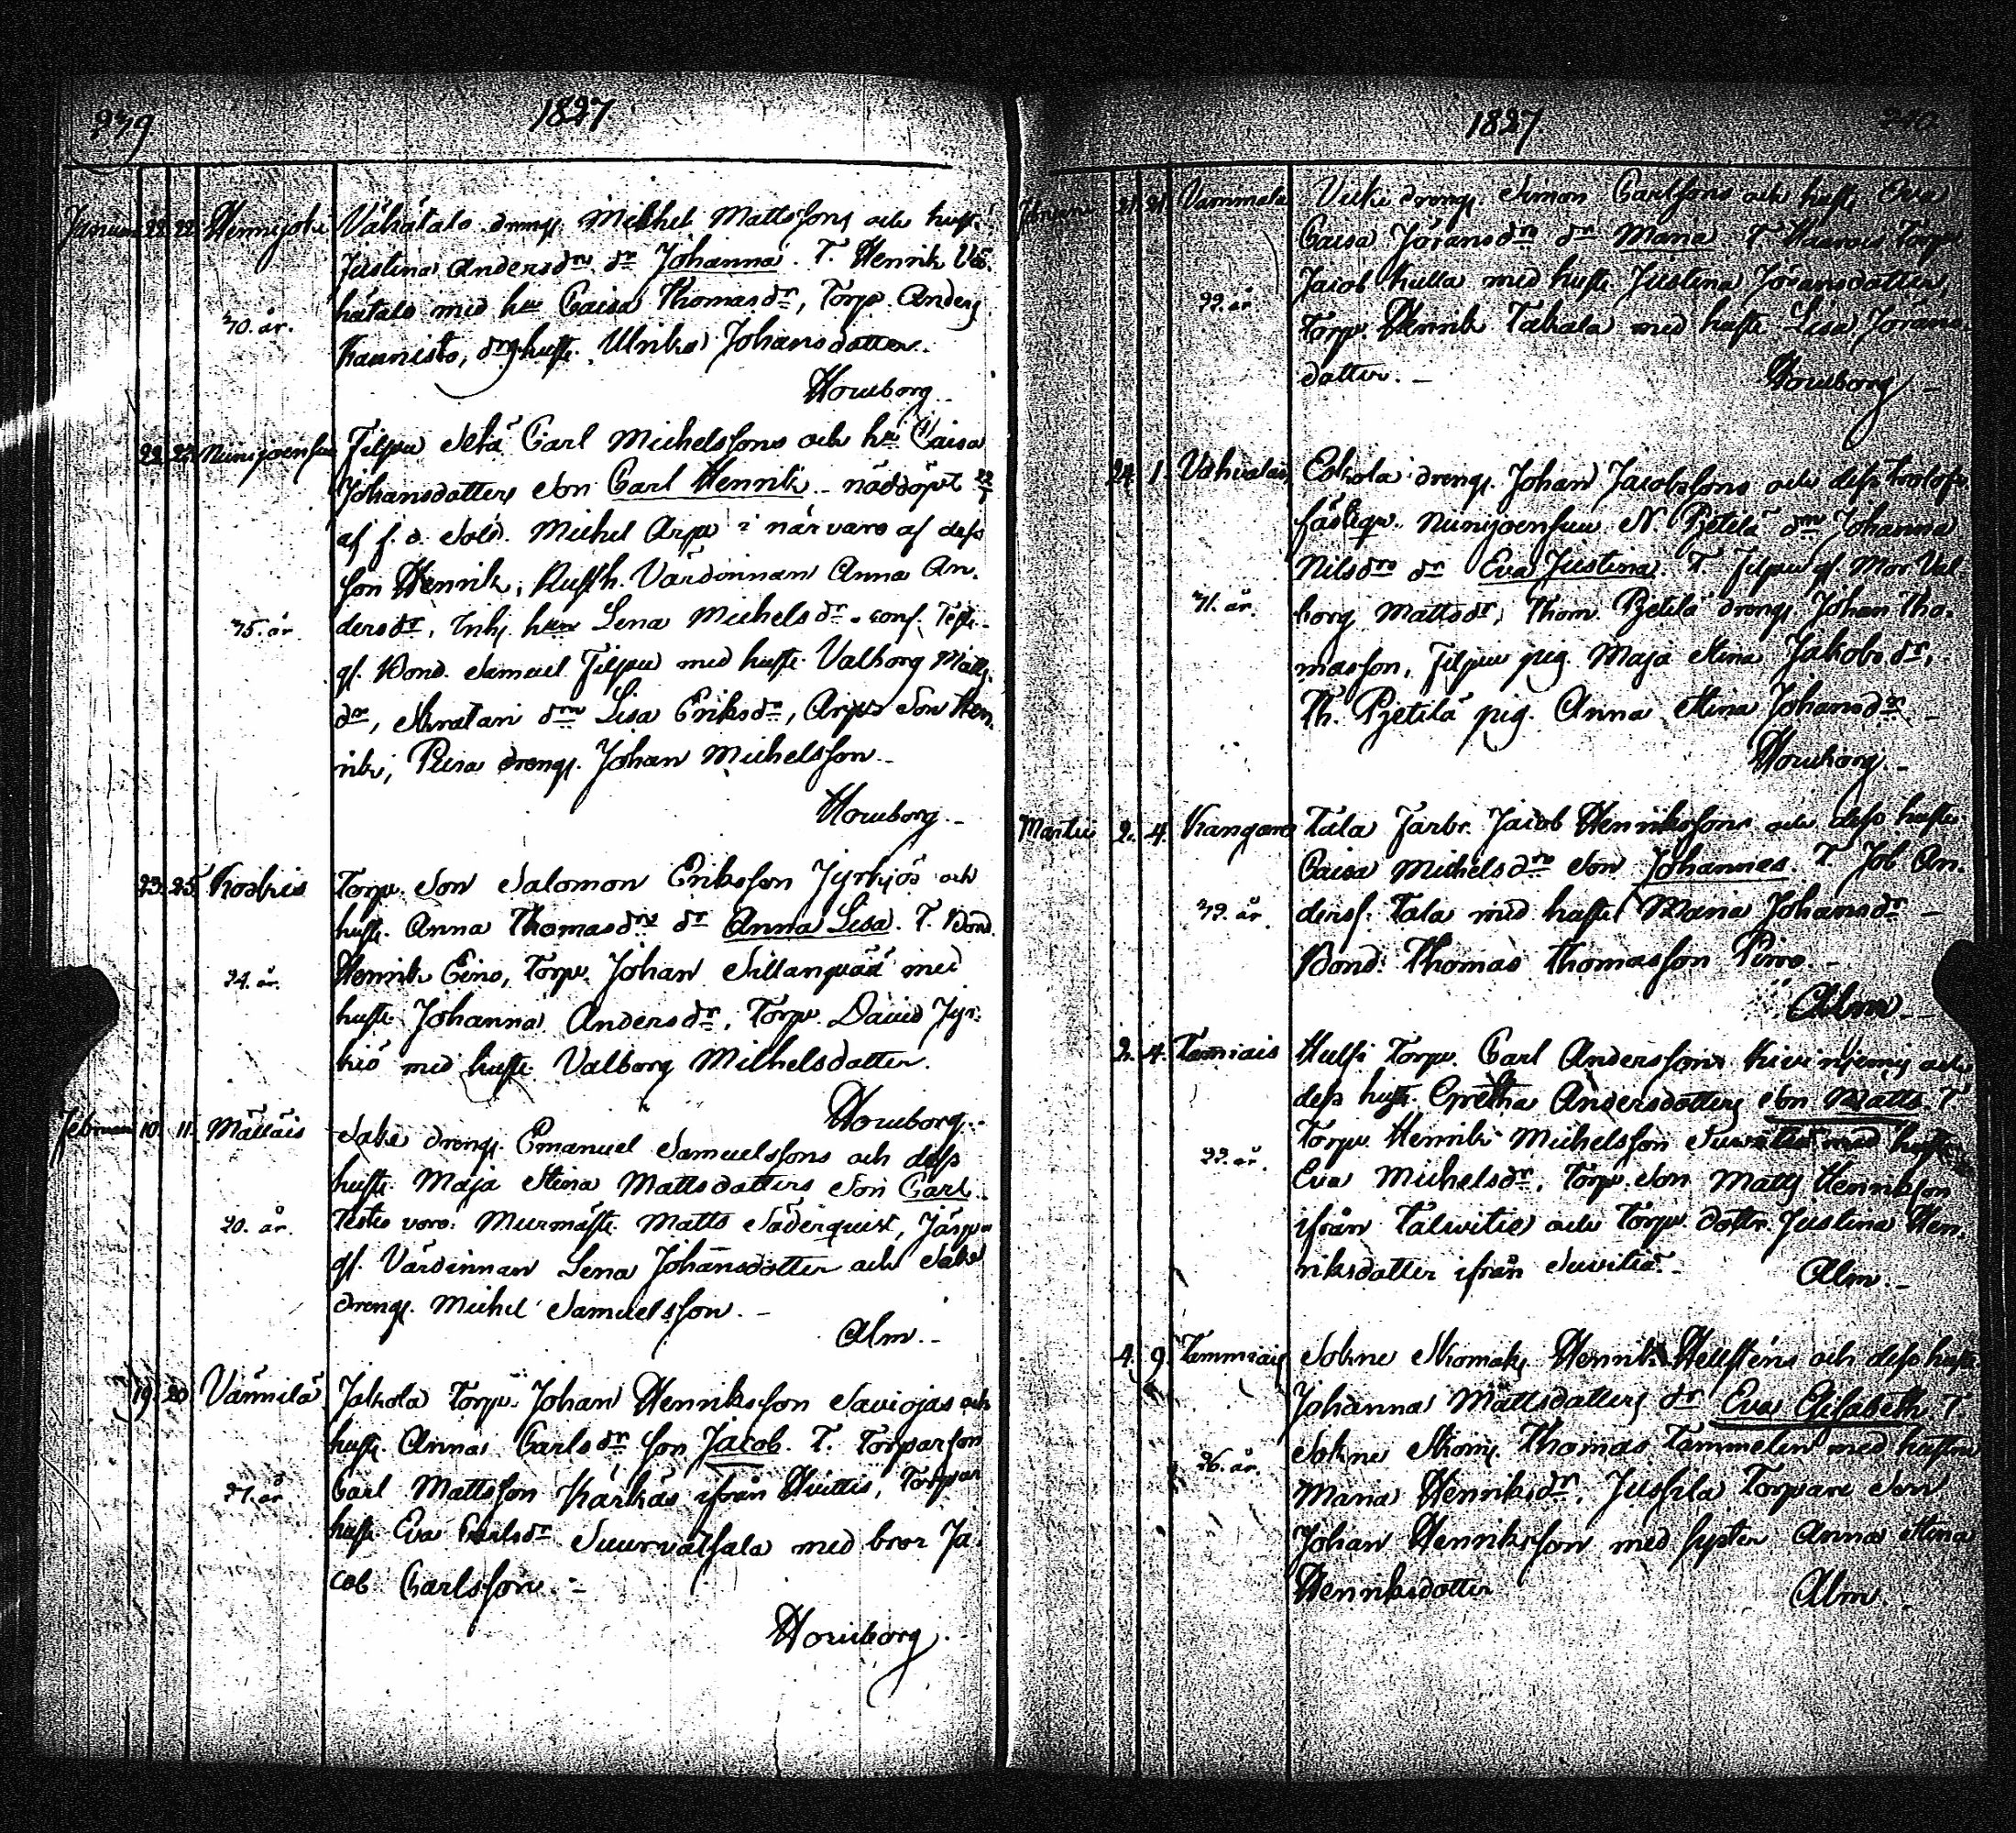 239
1827
Januari 22. 22. Hennijoki Vähätalo drengs. Michel Mattssons och hust.
Justina Andersdrs dr Johanna. T. Henrik Vä-
hätalo med hu Caisa Thomasdr, Torp. Anders
40. år.
Kaunisto, drghust. Ulrika Johansdotter.
Howborg.
22. 22. Ninijoensuu Filpu Sehä Carl Michelssons och hu Caisa
Johansdotters son Carl Henrik. nöddöpt 22
af f. d. Sold. Michel Arpu i närvaro af dess
son Henrik, Rusth. Värdinnan Anna An-
dersdr, Inhs hu Lena Michelsdr. conf. Test.
45. år
gl. Bond. Samuel Filpu med hust. Valborg Matts
dr, Lisa Eriksdr, Arpu Son Hen-
rik, drengs. Johan Michelsson.
Howborg.
23. 25. Koskis Torp. Son Salomon Eriksson Jyrkiös och
hust. Anna Thomasdrs dr Anna Lisa. T. Bond.
Henrik Eino, Torp. Johan Sillanpää med
24. år.
hust. Johanna Andersdr, Torp. David Jyr-
kiö med hust. Valborg Michelsdotter.
Howborg.
Februari 10. 11. Mälläis Sake drengs. Emanuel Samuelssons och dess
hust. Maja Stina Mattsdotters Son Carl.
20. år. Testes voro: Murmäst. Matts Säderquist,
gl. Värdinnan Lena Johansdotter och Sake
drengs. Michel Samuelsson.
Alm.
19. 20 Vännilä Jakola Torp. Johan Henriksson Saviojas och
hust. Anna Carlsdr, son Jacob. T. Torparson
Carl Mattsson Kärkäs ifrån Huittis, Torpar
27. år.
hust. Eva Carlsdr Suurvatsala med bror Ja-
cob Carlsson.
Howborg.
1827
240
Januari 21. 21. Vammala drengs. Simon Carlssons och hust. Eva
Caisa Jöransdrs dr Maria. T. Torp.
22. år
Jacob Kulla med hust. Justina Jöransdotter,
Torp. Henrik Takala med hust. Lisa Jörans-
dotter.
Howborg
24. 1. Eskola drengs. Johan Jacobssons och dess trolof.
Ninijoensuu N. Pjetilä Johanna
Nilsdrs dr Eva Justina. T. Filpu gl. Mor Val-
borg Mattsdr, Thom. Pjetilä drengs Johan Tho-
41. år.
masson, Filpu pig. Maja Stina Jakobsdr,
Th. Pjetilä pig. Anna Stina Johansdr.
Howborg.
Martii 2. 4. Kangare Tala Farbr. Jacob Henrikssons och dess hust.
Caisa Michelsdrs Son Johannes. T. Job An-
43. år
derss. Tala med hust. Maria Johansdr
Bond: Thomas Thomasson Pirro.
Alm
2. 4. Tamiais Hulfi Torp. Carl Anderssons Kiviniemis och
dess hust. Gretha Andersdotters Son Matts. T.
Torp. Henrik Michelsson med hust.
22. år.
Eva Michelsdr, Torp. Son Matts Henriksson
ifrån Talvitie och Torp. dotter. Justina Hen-
riksdotter ifrån Suvitie.
Alm.
4. 9. Tammiais Sokne Skomak. Henrik Hellsténs och dess hust.
Johanna Mattsdotters dr Eva Elisabeth. T.
Sokne Skom. Thomas Tammelin med hustru
26. år.
Maria Henriksdr. Jussila Torpare Son
Johan Henriksson med syster Anna Stina
Henriksdotter
Alm.